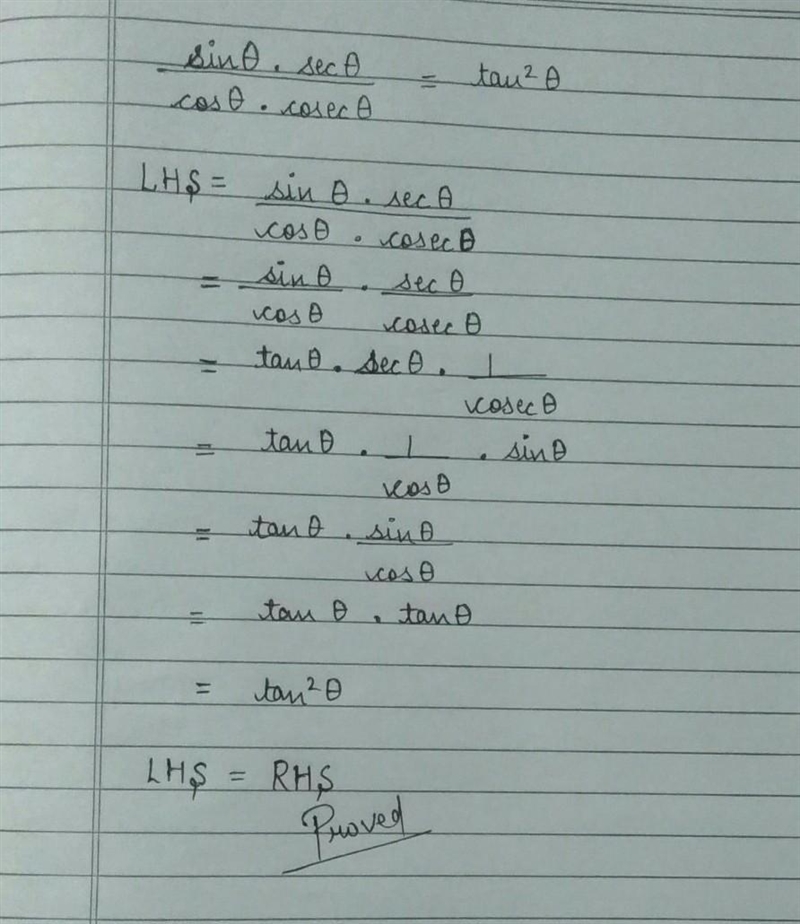 sinθ . secθ / cosθ . cosecθ = tan²θ
LHS = sin θ . sec θ / cosθ . cosec θ
= sin θ / cosθ . sec θ / cosec θ
= tanθ . secθ . 1 / cosec θ
= tan θ . 1 / cosθ . sinθ
= tanθ . sinθ / cosθ
= tan θ . tanθ
= tan²θ
LHS = RHS
Proved